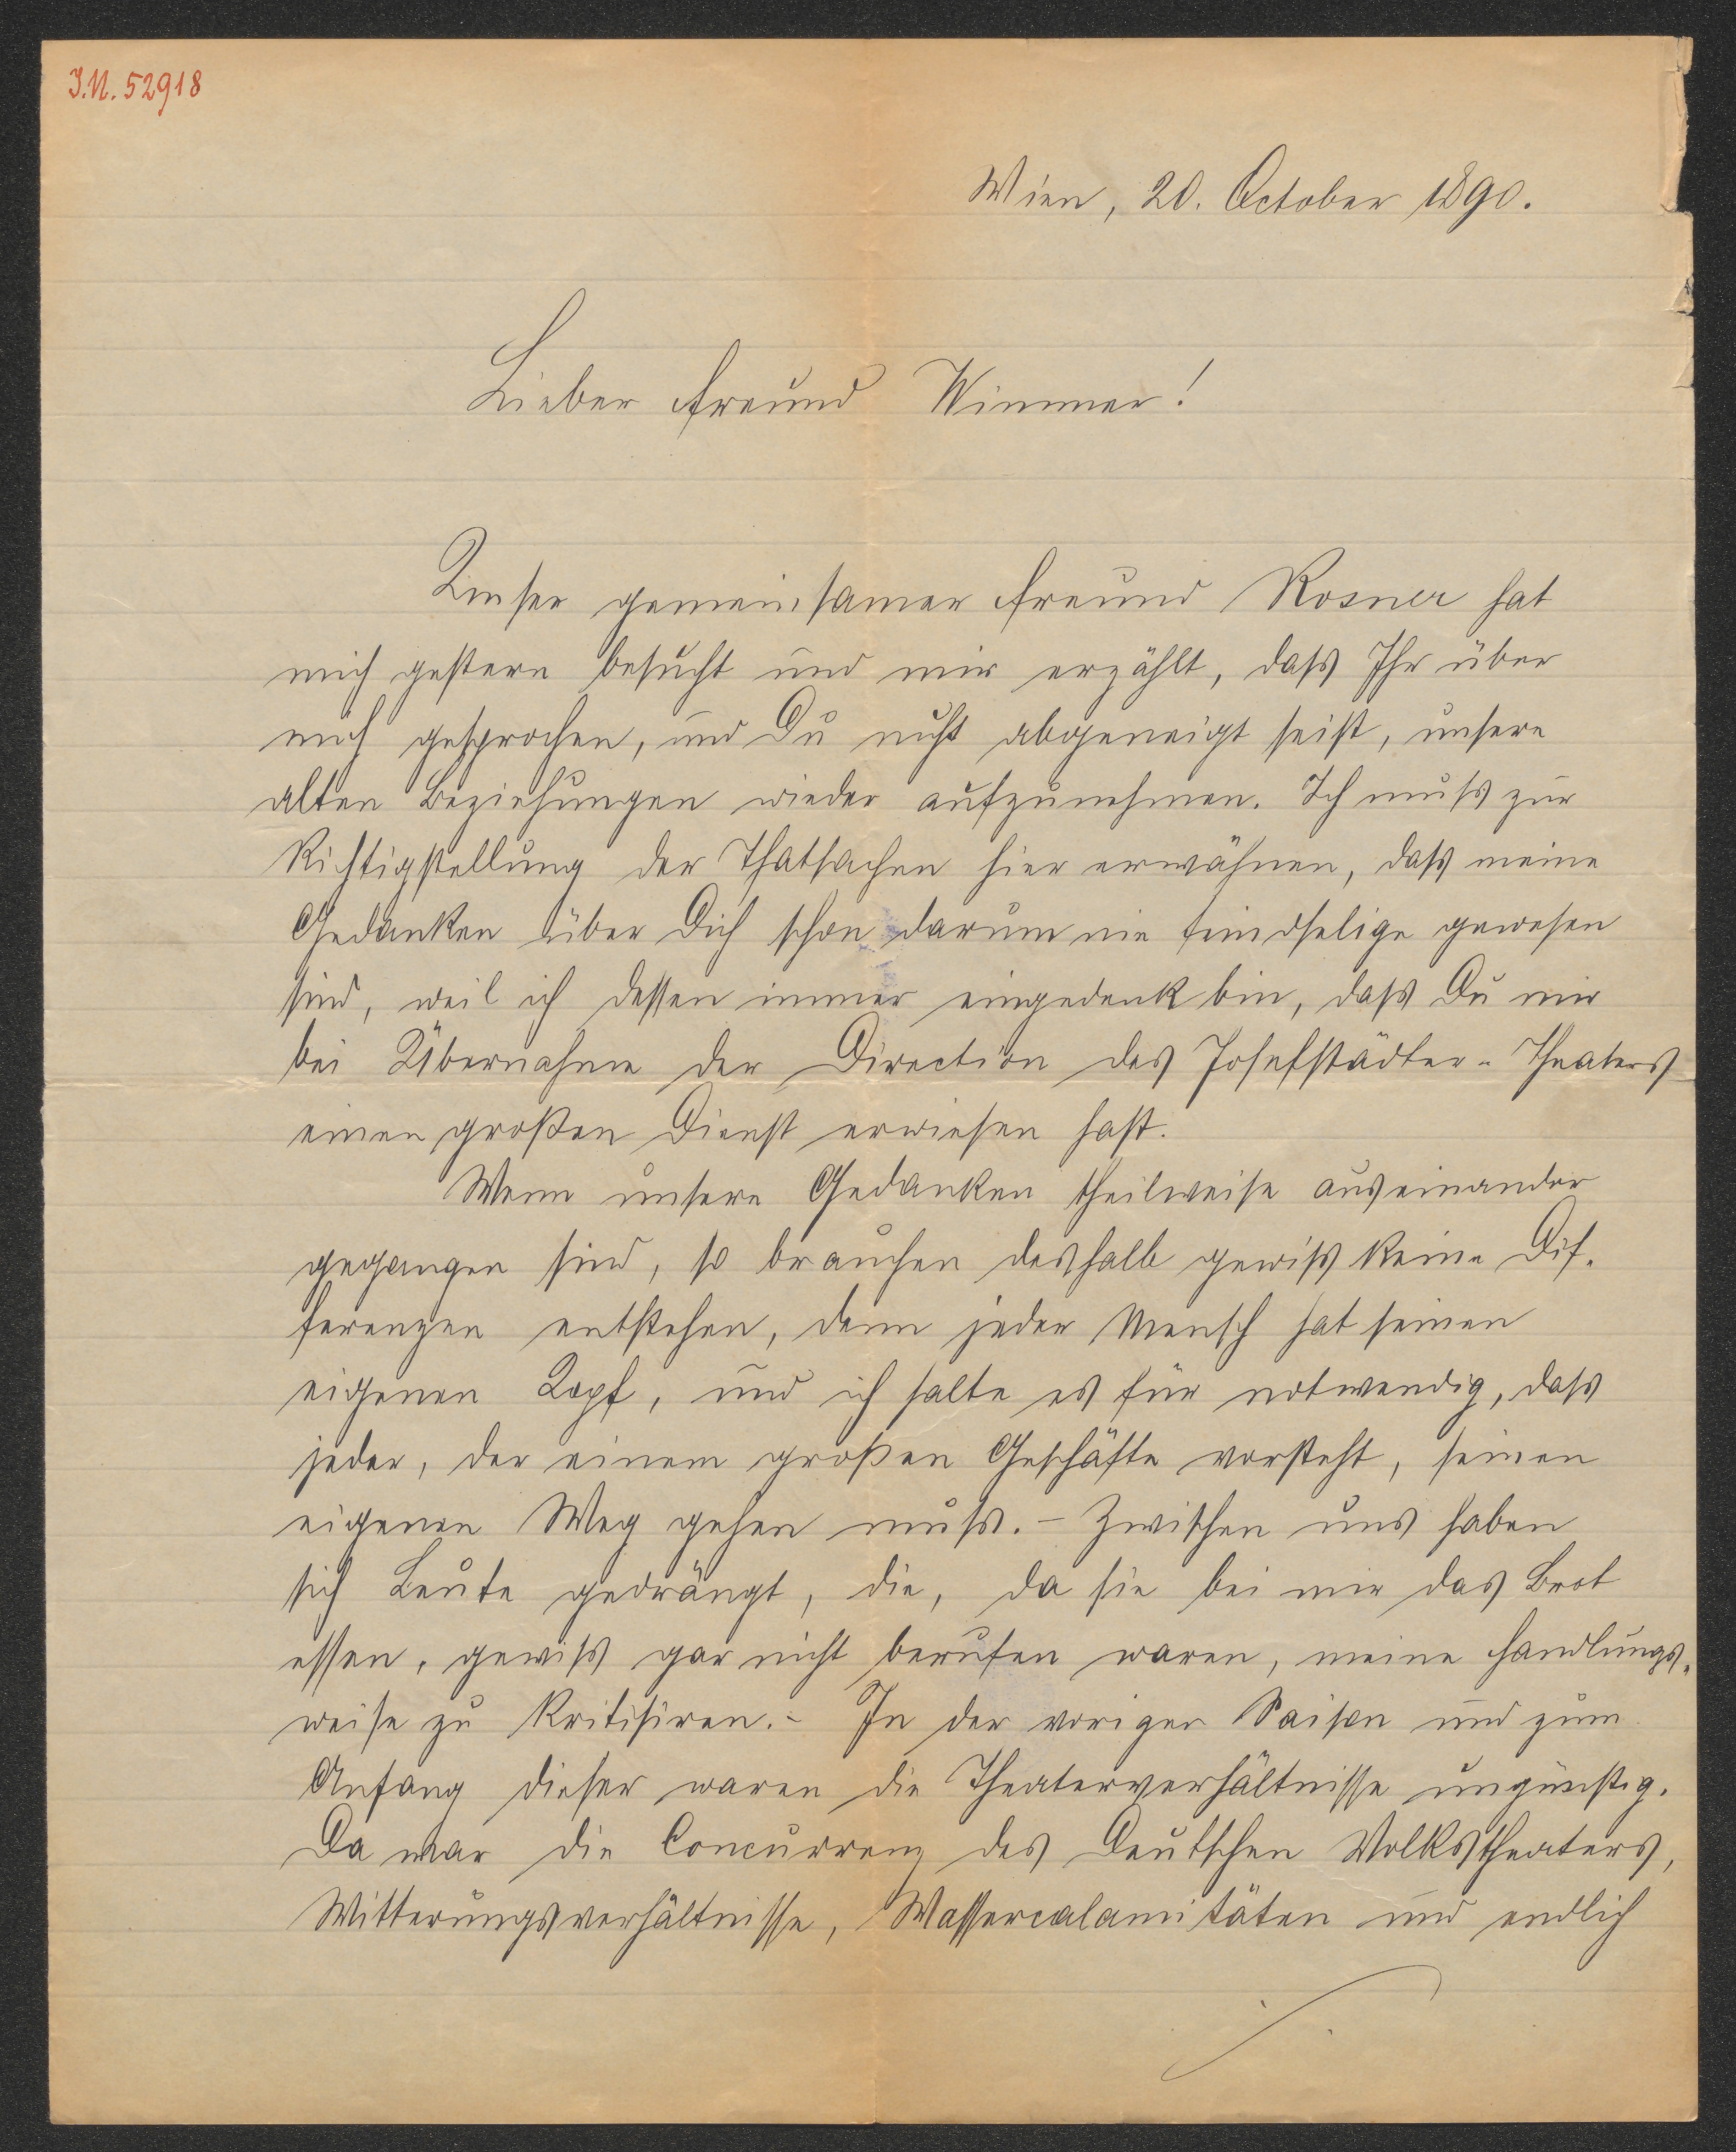 I.N. 52918
Wien, 20. October 1890.
Lieber Freund Wimmer!
Unser gemeinsamer Freund Rosner hat
mich gestern besucht und mir erzählt, dass Ihr über
mich gesprochen, und Du nicht abgeneigt seist, unsere
alten Beziehungen wieder aufzunehmen. Ich muss zur
Richtigstellung der Thatsachen hier erwähnen, dass meine
Gedanken über Dich schon darum nie feindselige gewesen
sind, weil ich dessen immer eingedenk bin, dass Du mir
bei Übernahme der Direction des Josefstädter-Theaters
einen großen Dienst erwiesen hast.
Wenn unsere Gedanken theilweise auseinander
gegangen sind, so brauchen deshalb gewiss keine Dif-
ferenzen entstehen, denn jeder Mensch hat seinen
eigenen Kopf, und ich halte es für notwendig, dass
jeder, der einem großen Geschäfte vorsteht, seinen
eigenen Weg gehen muss. – Zwischen uns haben
sich Leute gedrängt, die, da sie bei mir das Brot
essen, gewiss gar nicht berufen waren, meine Handlungs-
weise zu kritisiren. – In der vorigen Saison und zum
Anfang dieser waren die Theaterverhältnisse ungünstig.
Da war die Concurrenz des Deutschen Volkstheaters,
Witterungsverhältnisse, Wassercalamitäten und endlich